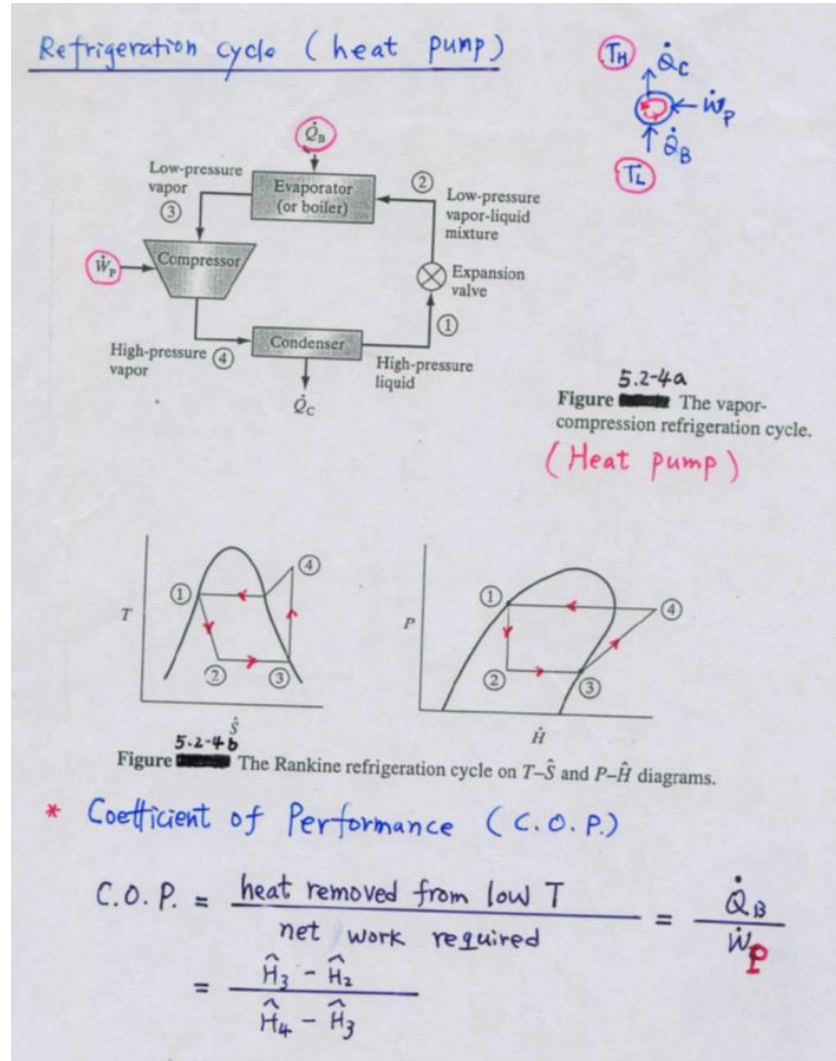 Refrigeration cycle (heat pump)
T_H Q̇_C
Ẇ_P
Q̇_B
T_L
Q̇_B
Low-pressure
vapor
③
Evaporator
(or boiler)
②
Low-pressure
vapor-liquid
mixture
Ẇ_P
Compressor
Expansion
valve
①
High-pressure ④
vapor
Condenser
High-pressure
liquid
Q̇_C
5.2-4a
Figure The vapor-
compression refrigeration cycle.
(Heat pump)
T
①
②
③
④
Ŝ
P
①
②
③
④
Ĥ
5.2-4b
Figure The Rankine refrigeration cycle on T–Ŝ and P–Ĥ diagrams.
* Coefficient of Performance (C.O.P.)
C.O.P. = heat removed from low T / net work required = Q̇_B / Ẇ_P
= Ĥ_3 - Ĥ_2 / Ĥ_4 - Ĥ_3